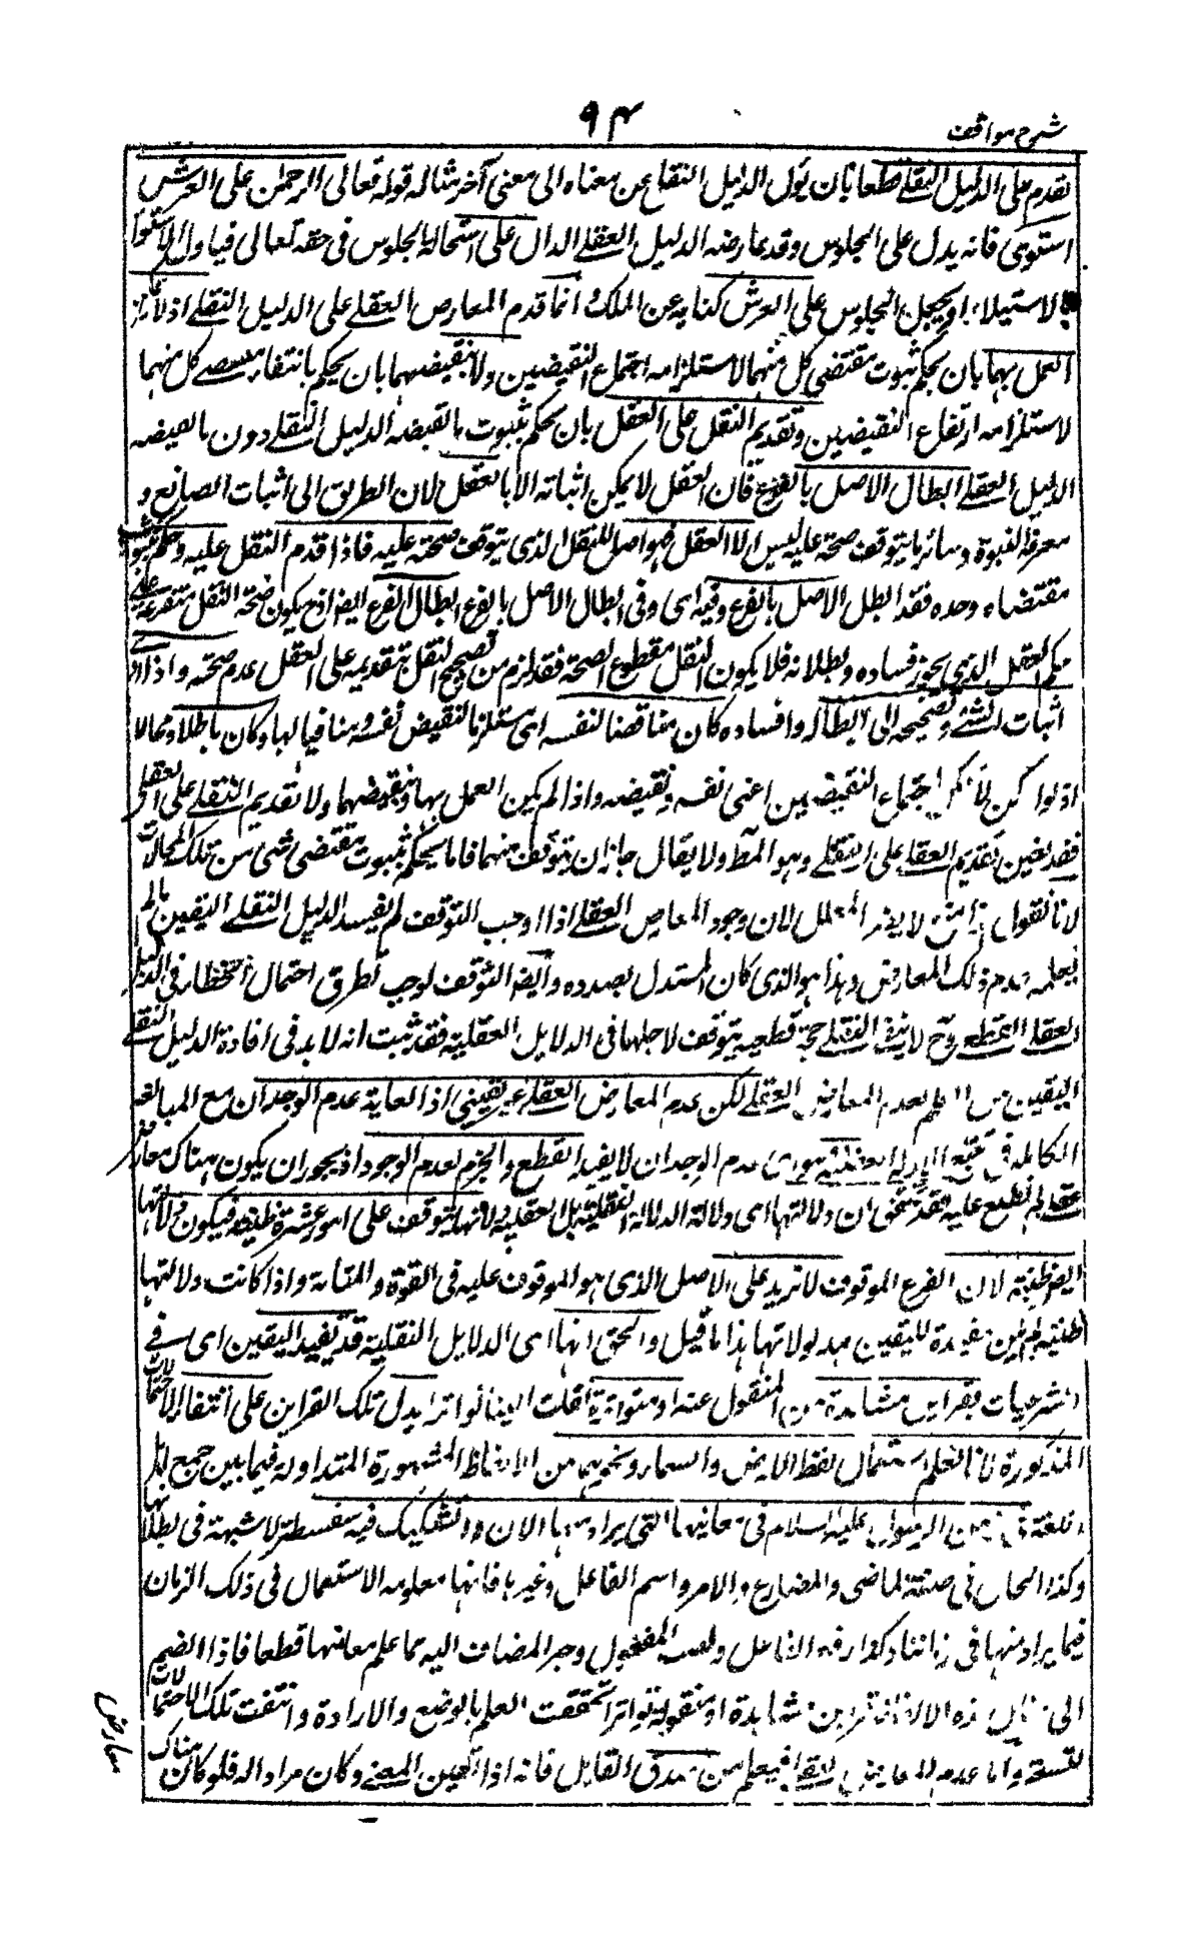 شرح مواقف
۹۴
تقدم على الدليل النقلے قطعا بان يؤل الدليل النقلے عن معناه الى معنى آخر مثاله قوله تعالى الرحمن على العرش
استوى فانه يدل على الجلوس وقد عارضه الدليل العقلے الدال على استحالة الجلوس فى حقه تعالى فياول الاستواء
بالاستيلاء او يجعل الجلوس على العرش كناية عن الملك و انما قدم المعارض العقلے على الدليل النقلے اذ لا يمكن
العمل بهما بان يحكم بثبوت مقتضى كل منهما لاستلزامه اجتماع النقيضين ولا بنقيضهما بان يحكم بانتفاء مقتضے كل منهما
لاستلزامه ارتفاع النقيضين وتقديم النقل على العقل بان يحكم بثبوت ما يقتضيه الدليل النقلے دون ما يقتضيه
الدليل العقلے ابطال الاصل بالفرع فان العقل لا يمكن اثباته الا بالعقل لان الطريق الى اثبات الصانع و
معرفة النبوة وسائر ما يتوقف صحته عليه ليس الا العقل فهو اصل للنقل الذى يتوقف صحته عليه فاذا قدم النقل عليه وحكم بثبوت
مقتضاه وحده فقد ابطل الاصل بالفرع وفيه اى وفى ابطال الاصل بالفرع ابطال الفرع ايضا اذ يكون صحة النقل متفرعة على
حكم العقل الذى يجوز فساده وبطلانه فلا يكون النقل مقطوع الصحة فقد لزم من تصحيح النقل بتقديمه على العقل عدم صحته واذا ادى
اثبات الشئ وتصحيحه الى ابطاله وافساده كان مناقضا لنفسه اى مستلزما لنقيض نفسه ومنافيا لها وكان باطلا ومحالا
اذ لو امكن لامكن اجتماع النقيضين اعنى نفسه ونقيضه واذا لم يكن العمل بهما ونقيضهما ولا تقديم النقلے على العقلے
فقد تعين تقديم العقلے على النقلے وهو المط ولا يقال جاز ان يتوقف منهما فلا يحكم بثبوت مقتضى شى من تلك المحالات
لانا نقول لا يضر المعلل لان وجود المعارض العقلے اذا اوجب التوقف لم يفسد الدليل النقلے اليقين ما لم
يعلم عدم ذلك المعارض وهذا هو الذى كان المستدل بصدده وايضا التوقف يوجب تطرق احتمال الخطاء فى الدليل
العقلے القطعے وح لا يبقى العقلے حجة قطعية يتوقف لاجلها فى الدلايل العقلية فقد ثبت انه لا بد فى افادة الدليل النقلے
اليقين من العلم بعدم المعارض العقلے لكن عدم المعارض العقلے غير يقينى اذ الغاية عدم الوجدان مع المبالغة
الكاملة فى تتبع الادلة العقلية وعدم الوجدان لا يفيد القطع والجزم بعدم الوجود اذ يجوز ان يكون هناك معارض
عقلے لم نطلع عليه فقد تحقق ان دلالتها اى دلالة الدلائل النقلية بل العقلية لانها يتوقف على امور عشرة ظنية فيكون دلالتها
ايضا ظنية لان الفرع الموقوف لا تزيد على الاصل الذى هو الموقوف عليه فى القوة والمتانة واذا كانت دلالتها
ظنية لم يكن مفيدة لليقين بمدلولاتها هذا ما قيل والحق انها اى الدلايل النقلية قد تفيد اليقين اى فے
الشرعيات بقراين مشاهدة من المنقول عنه او متواترة نقلت الينا تواترا يدل تلك القراين على انتفاء الاحتمالات
المذكورة فانا نعلم استعمال لفظ الارض والسماء ونحوهما من الالفاظ المشهورة المتداولة فيما بين جميع اهل
اللغة فى زمن الرسول عليه السلام فى معانيها التى يراد منها الان والتشكيك فيه سفسطة لا شبهة فى بطلانها
وكذا الحال فى صيغة الماضى والمضارع والامر واسم الفاعل وغيرها فانها معلومة الاستعمال فى ذلك الزمان
فيما يراد منها فى زماننا وكذا رفع الفاعل ونصب المفعول وجر المضاف اليه مما علم معانيها قطعا فاذا انضم
الى مثل هذه الالفاظ قراين مشاهدة او منقولة تواترا تحققت العلم بالوضع والارادة وانتفت تلك الاحتمالات
التسعة واما عدم المعارض العقلے فيعلم من صدق القايل فانه اذا تعين المعنے وكان مرادا له فلو كان هناك
معارض